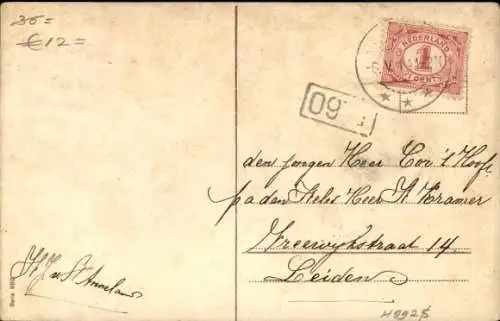 35=
€ 12=
NEDERLAND
1
CENT
09
den jongen Heer Cor 't Hooft
p a den Heer St. Kramer
Vreewijkstraat 14
Leiden
St. Annaland
Serie
H9925